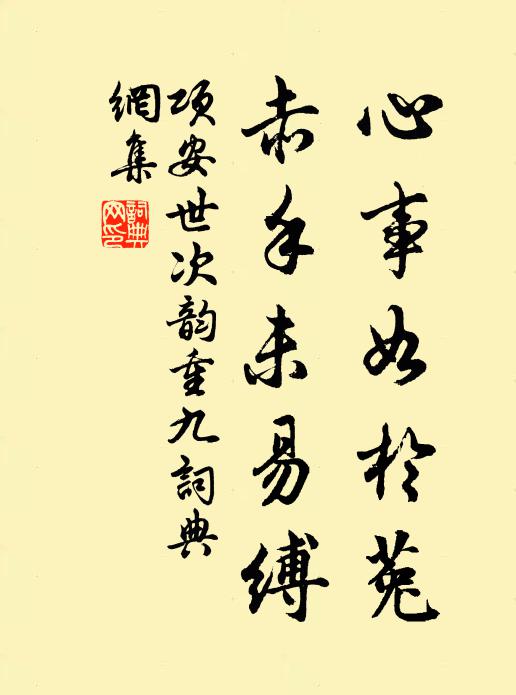 心事如於菟
赤手未易縛
項安世次韵重九詞典
網集
詞典
网印